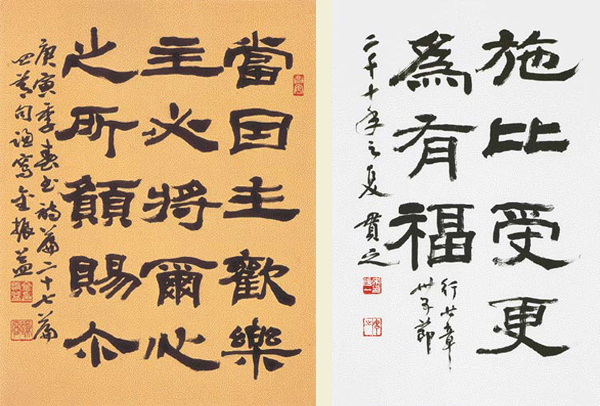 當因主歡樂
主必將爾心
之所願賜尒
庚寅季春书詩篇二十七篇
四句謹寫金振益
施比受更
為有福
行廿章
卅五節
二千十年之夏 貫之